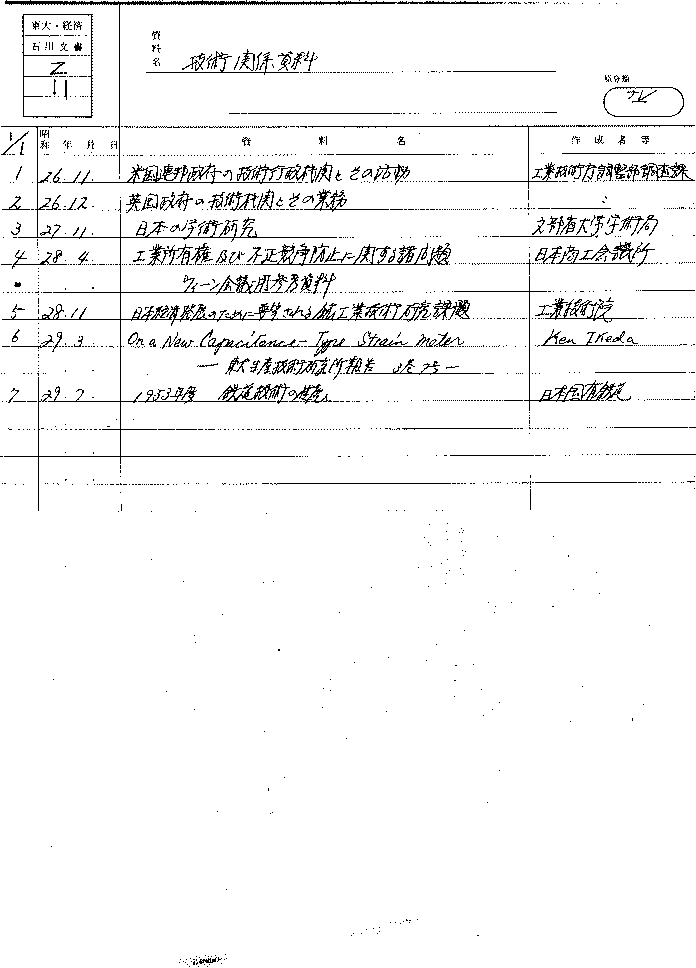 東大・経済
石川文書
Z
11
資料名 技術関係資料
原分類
ナシ
1/1 昭和 年 月 日 資 料 名 作成者等
1 26.11. 米国連邦政府の技術行政機関とその活動 工業技術庁調整部調査課
2 26.12. 英国政府の技術機関とその業務 〃
3 27.11 日本の学術研究 文部省大学学術局
4 28.4. 工業所有権及び不正競争防止に関する諸問題 日本商工会議所
ウィーン会議用参考資料
5 28.11 日本経済発展のために要望される鉱工業技術研究課題 工業技術院
6 29.3 On a New Capacitance-Type Strain Meter Ken Ikeda
— 東大生産技術研究所報告 3巻7号 —
7 29.7 1953年度 鉄道技術の進展 日本国有鉄道